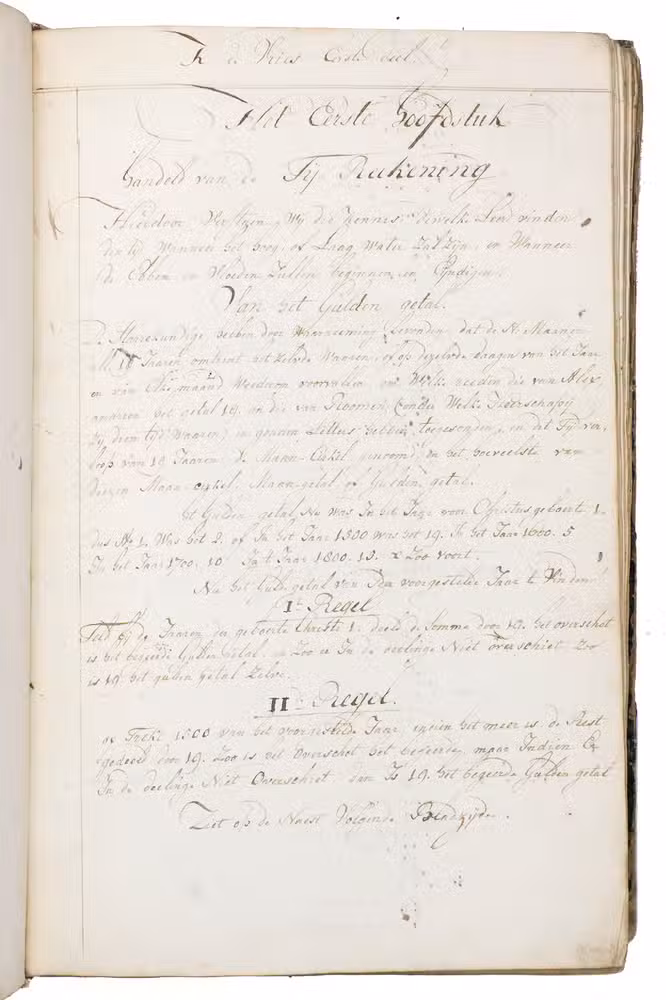 K de Vries Eerste deel.
Het Eerste Hoofdstuk
Handeld van de Tij Reekening
Hierdoor Verstaen Wij die kennis dewelke Leert vinden
den tijd Wanneer het hoog of Laag Water Zal Zijn, en Wanneer
de Ebben en Vloeden Zullen beginnen en Eyndigen
Van het Gulden getal.
De Starrekundige hebben door Waarneeming bevonden dat de N. Maanen
alle 19 Jaaren omtrent het Zelve Waaren, of op dezelve daagen van het Jaar
en van Elke maand Wederom voorvallen om Welke reeden die van Alex
het getal 19 en die van Roomen (onder Welke
Zij dien tijd Waaren) in goude Letters hebben toegesonden, en dat Tijd ver
loop van 19 Jaaren de Maan Cirkel genoemd, en het hoeveelste van
deezen Maan cirkel Maan getal of Gulden getal.
Het Gulden getal Nu was In het Jaar voor Christus geboorte 1.
dus Ao 1. Was het 2. of In het Jaar 1500 was het 19. In het Jaar 1600. 5
In het Jaar 1700. 10. In't Jaar 1800. 15. & Zoo voort.
Nu het Guld: getal van Een voorgestelde Jaar te Vinden
I: Regel
Teld bij de Jaaren der geboorte Christi 1. deeld de Somma door 19. het overschot
is het begeerde Gulden getal en Zoo er In de deelinge Niet overschiet Zoo
is 19. het gulden getal Zelve.
II: Regel.
of Trekt 1500 van het voorgestelde Jaar, indien het meer is de Rest
gedeeld door 19. Zoo is het overschot het begeerde, maar Indien Er
In de deelinge Niet Overschiet dan Is 19. het begeerde Gulden getal
Ziet op de Naest Volgende Bladzijde.